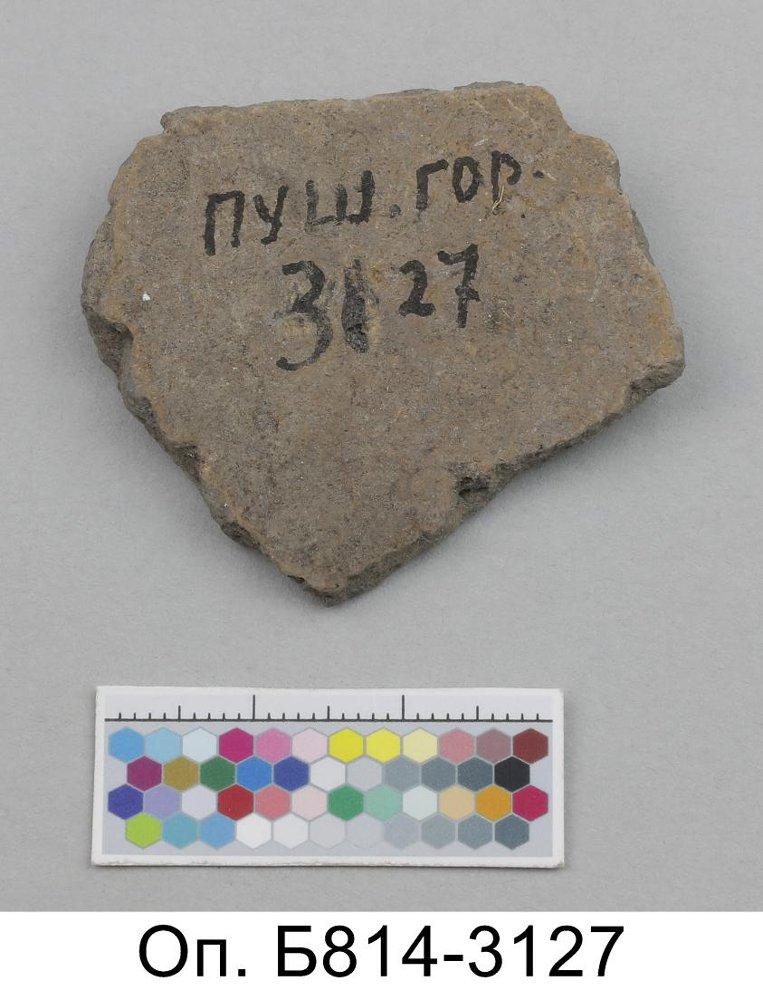 ПУШ. ГОР.
3127
Оп. Б814-3127